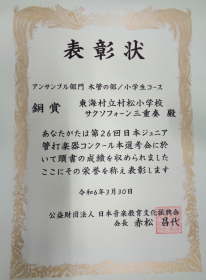 表彰状
アンサンブル部門 木管の部／小学生コース
銅賞 東海村立村松小学校
サクソフォーン三重奏 殿
あなたがたは第26回日本ジュニア
管打楽器コンクール本選考会に於
いて頭書の成績を収められました
ここにその栄誉を称え表彰します
令和6年3月30日
公益財団法人 日本音楽教育文化振興会
会長 赤松 昌代